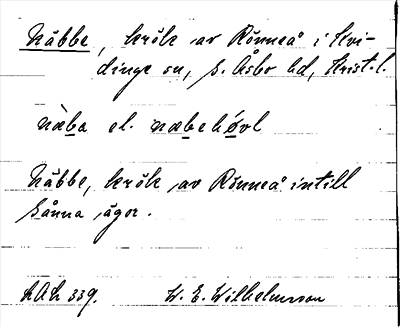 Nåbbe, krök av Rönneå i Kvi-
dinge sn, S. Åsbo hd, Krist. l.
nàba el. nabehóvl
Nåbbe, krök av Rönneå intill
Sånna ägor.
LAL 339. W. E. Wilhelmsson